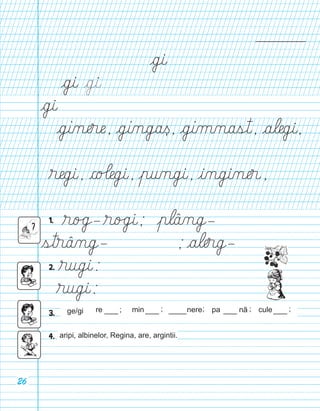 gi
gi gi
gi
ginere, gingaș, gimnast, alegi,
regi, colegi, pungi, inginer,
1. rog - rogi; plâng -
strâng - ; alerg -
2. rugi:
rugi:
3. ge/gi re ___ ; min ___ ; ____nere; pa ___ nă ; cule ___ ;
4. aripi, albinelor, Regina, are, argintii.
26